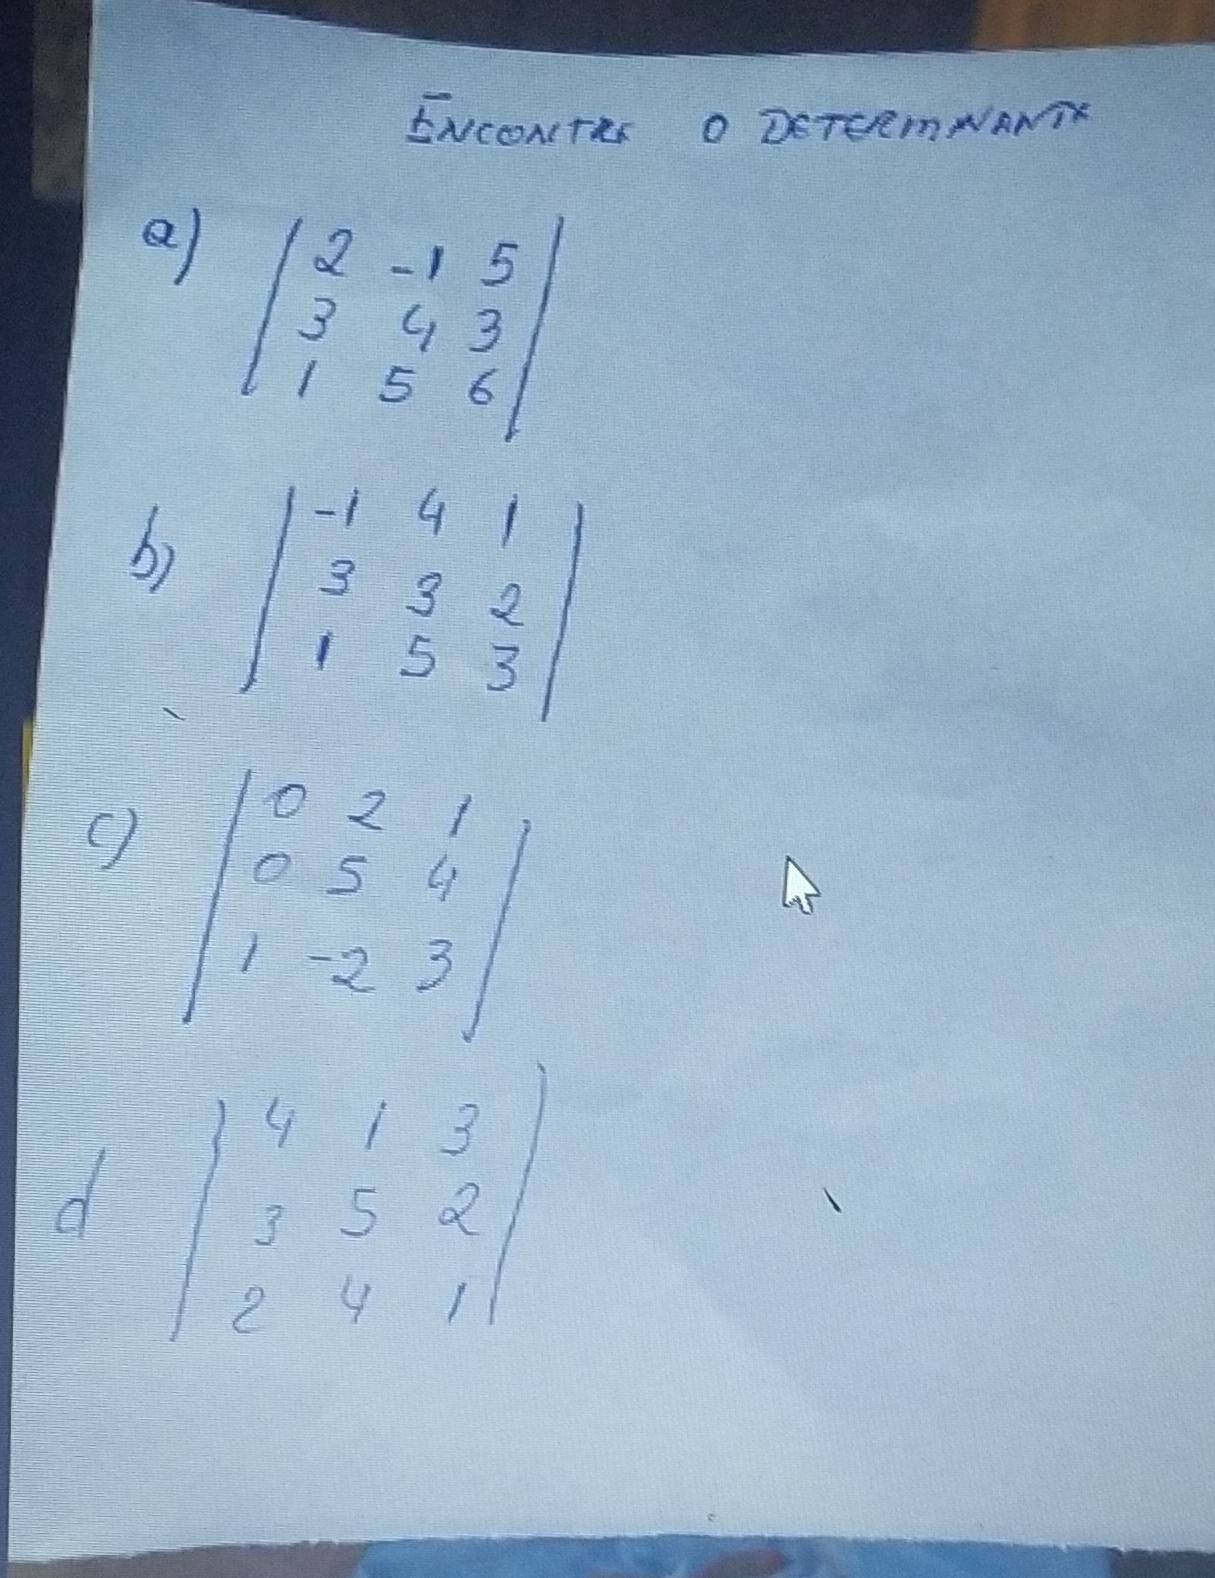 ENCONTRE O DETERMINANTE
a) | 2 -1 5 |
| 3 4 3 |
| 1 5 6 |
b) | -1 4 1 |
| 3 3 2 |
| 1 5 3 |
c) | 0 2 1 |
| 0 5 4 |
| 1 -2 3 |
d | 4 1 3 |
| 3 5 2 |
| 2 4 1 |